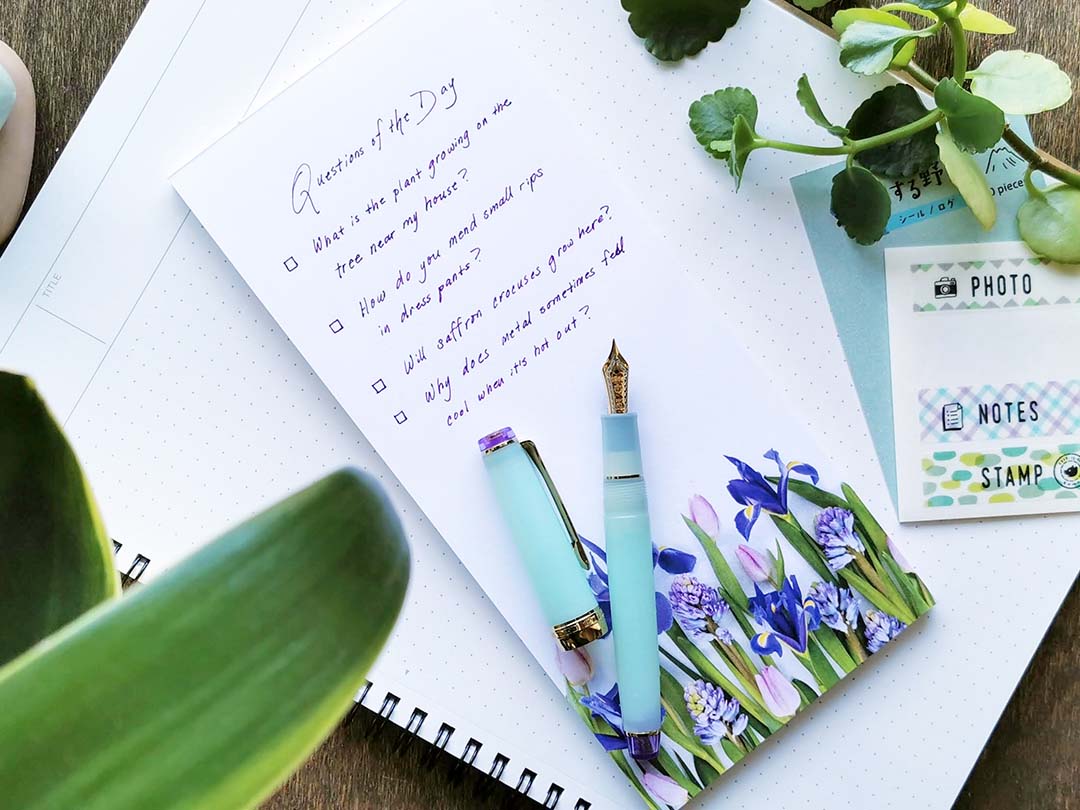 Questions of the Day
What is the plant growing on the
tree near my house?
How do you mend small rips
in dress pants?
Will saffron crocuses grow here?
Why does metal sometimes feel
cool when it's hot out?
TITLE
する野
シール / ログ
piece
PHOTO
NOTES
STAMP